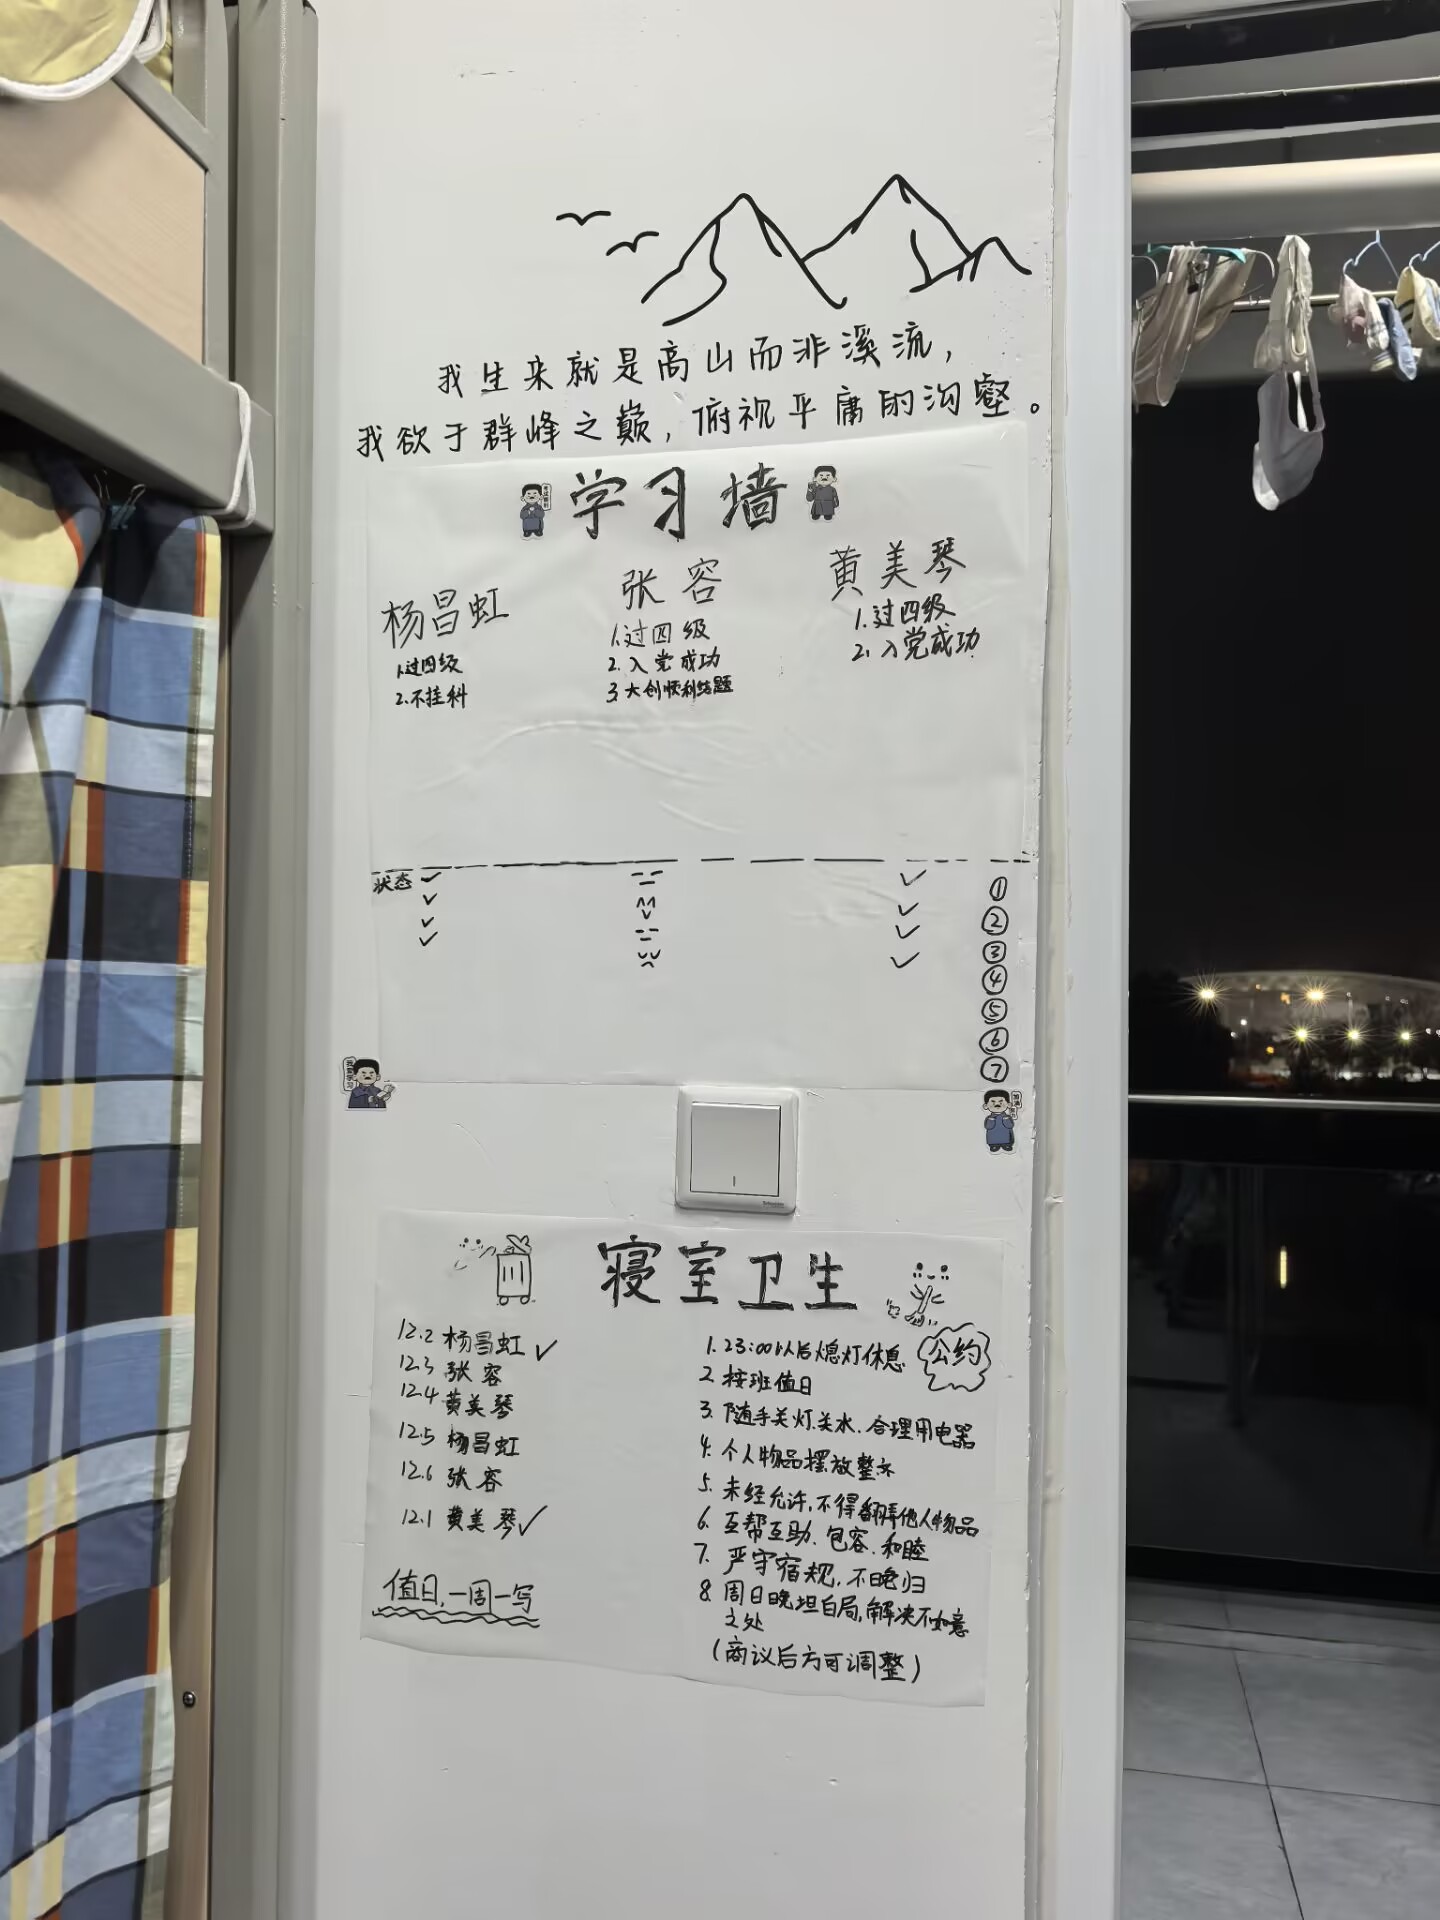 我生来就是高山而非溪流，
我欲于群峰之巅，俯视平庸的沟壑。
学习墙
杨昌虹
1.过四级
2.不挂科
张容
1.过四级
2.入党成功
3.大创顺利结题
黄美琴
1.过四级
2.入党成功
状态
①
②
③
④
⑤
⑥
⑦
寝室卫生
12.2 杨昌虹 ✓
12.3 张容
12.4 黄美琴
12.5 杨昌虹
12.6 张容
12.1 黄美琴 ✓
值日，一周一写
公约
1. 23:00以后熄灯休息
2. 按班值日
3. 随手关灯.关水.合理用电器
4. 个人物品摆放整齐
5. 未经允许，不得翻弄他人物品
6. 互帮互助.包容.和睦
7. 严守宿规，不晚归
8. 周日晚坦白局，解决不如意
之处
（商议后方可调整）